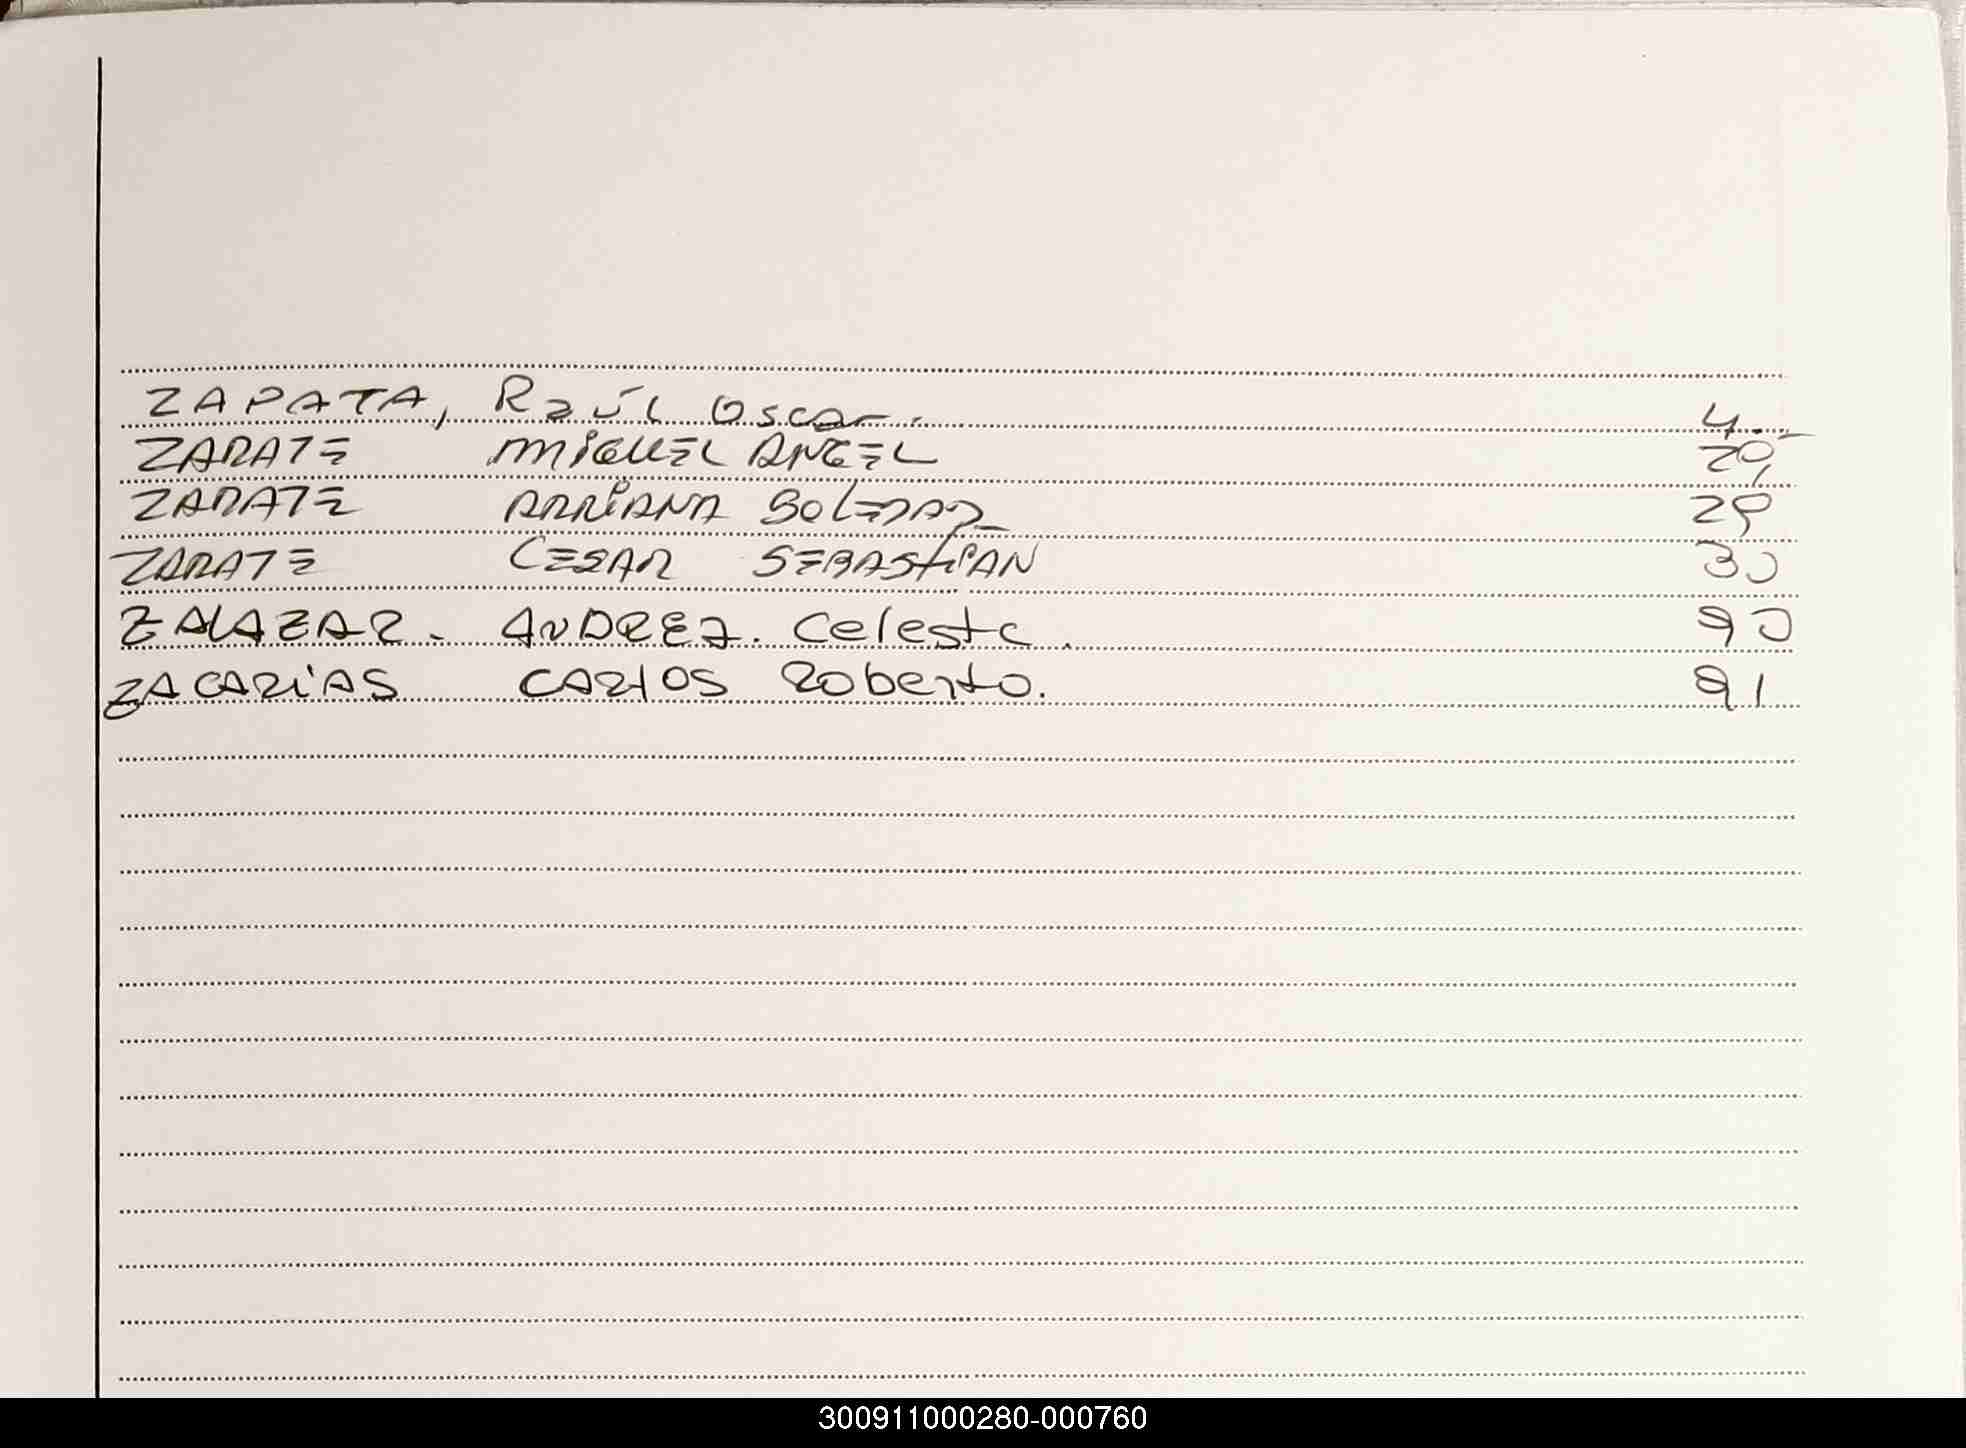 ZAPATA, Raúl Oscar. 4.-
ZARATE MIGUEL ANGEL 29
ZARATE ARRIANA SOLEDAD 29
ZARATE CESAR SEBASTIAN 30
ZALAZAR. ANDREA. Celeste. 90
ZACARIAS CARLOS Roberto. 91
300911000280-000760